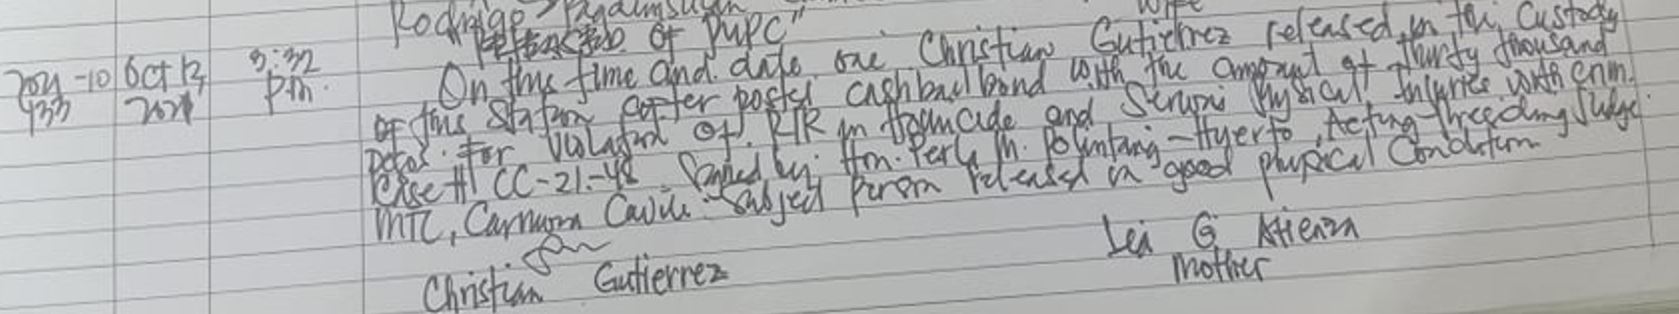 Wife
of PUPC"
2021-10 Oct 12, 3:32 On this time and date one Christian Gutierrez released in the Custody
933 2021 Pm. of this Station after posted cashbailbond with the amount of thirty thousand
Pesos. For Violation of. RIR in Homicide and Serious Physical Injuries with Crim.
Case # CC-21-48 Signed by: Hon. Perla M. Acting Presiding Judge
MTC, Carmona Cavite. Subject Person released in good physical Condition
Lei G Atienza
Mother
Christian Gutierrez